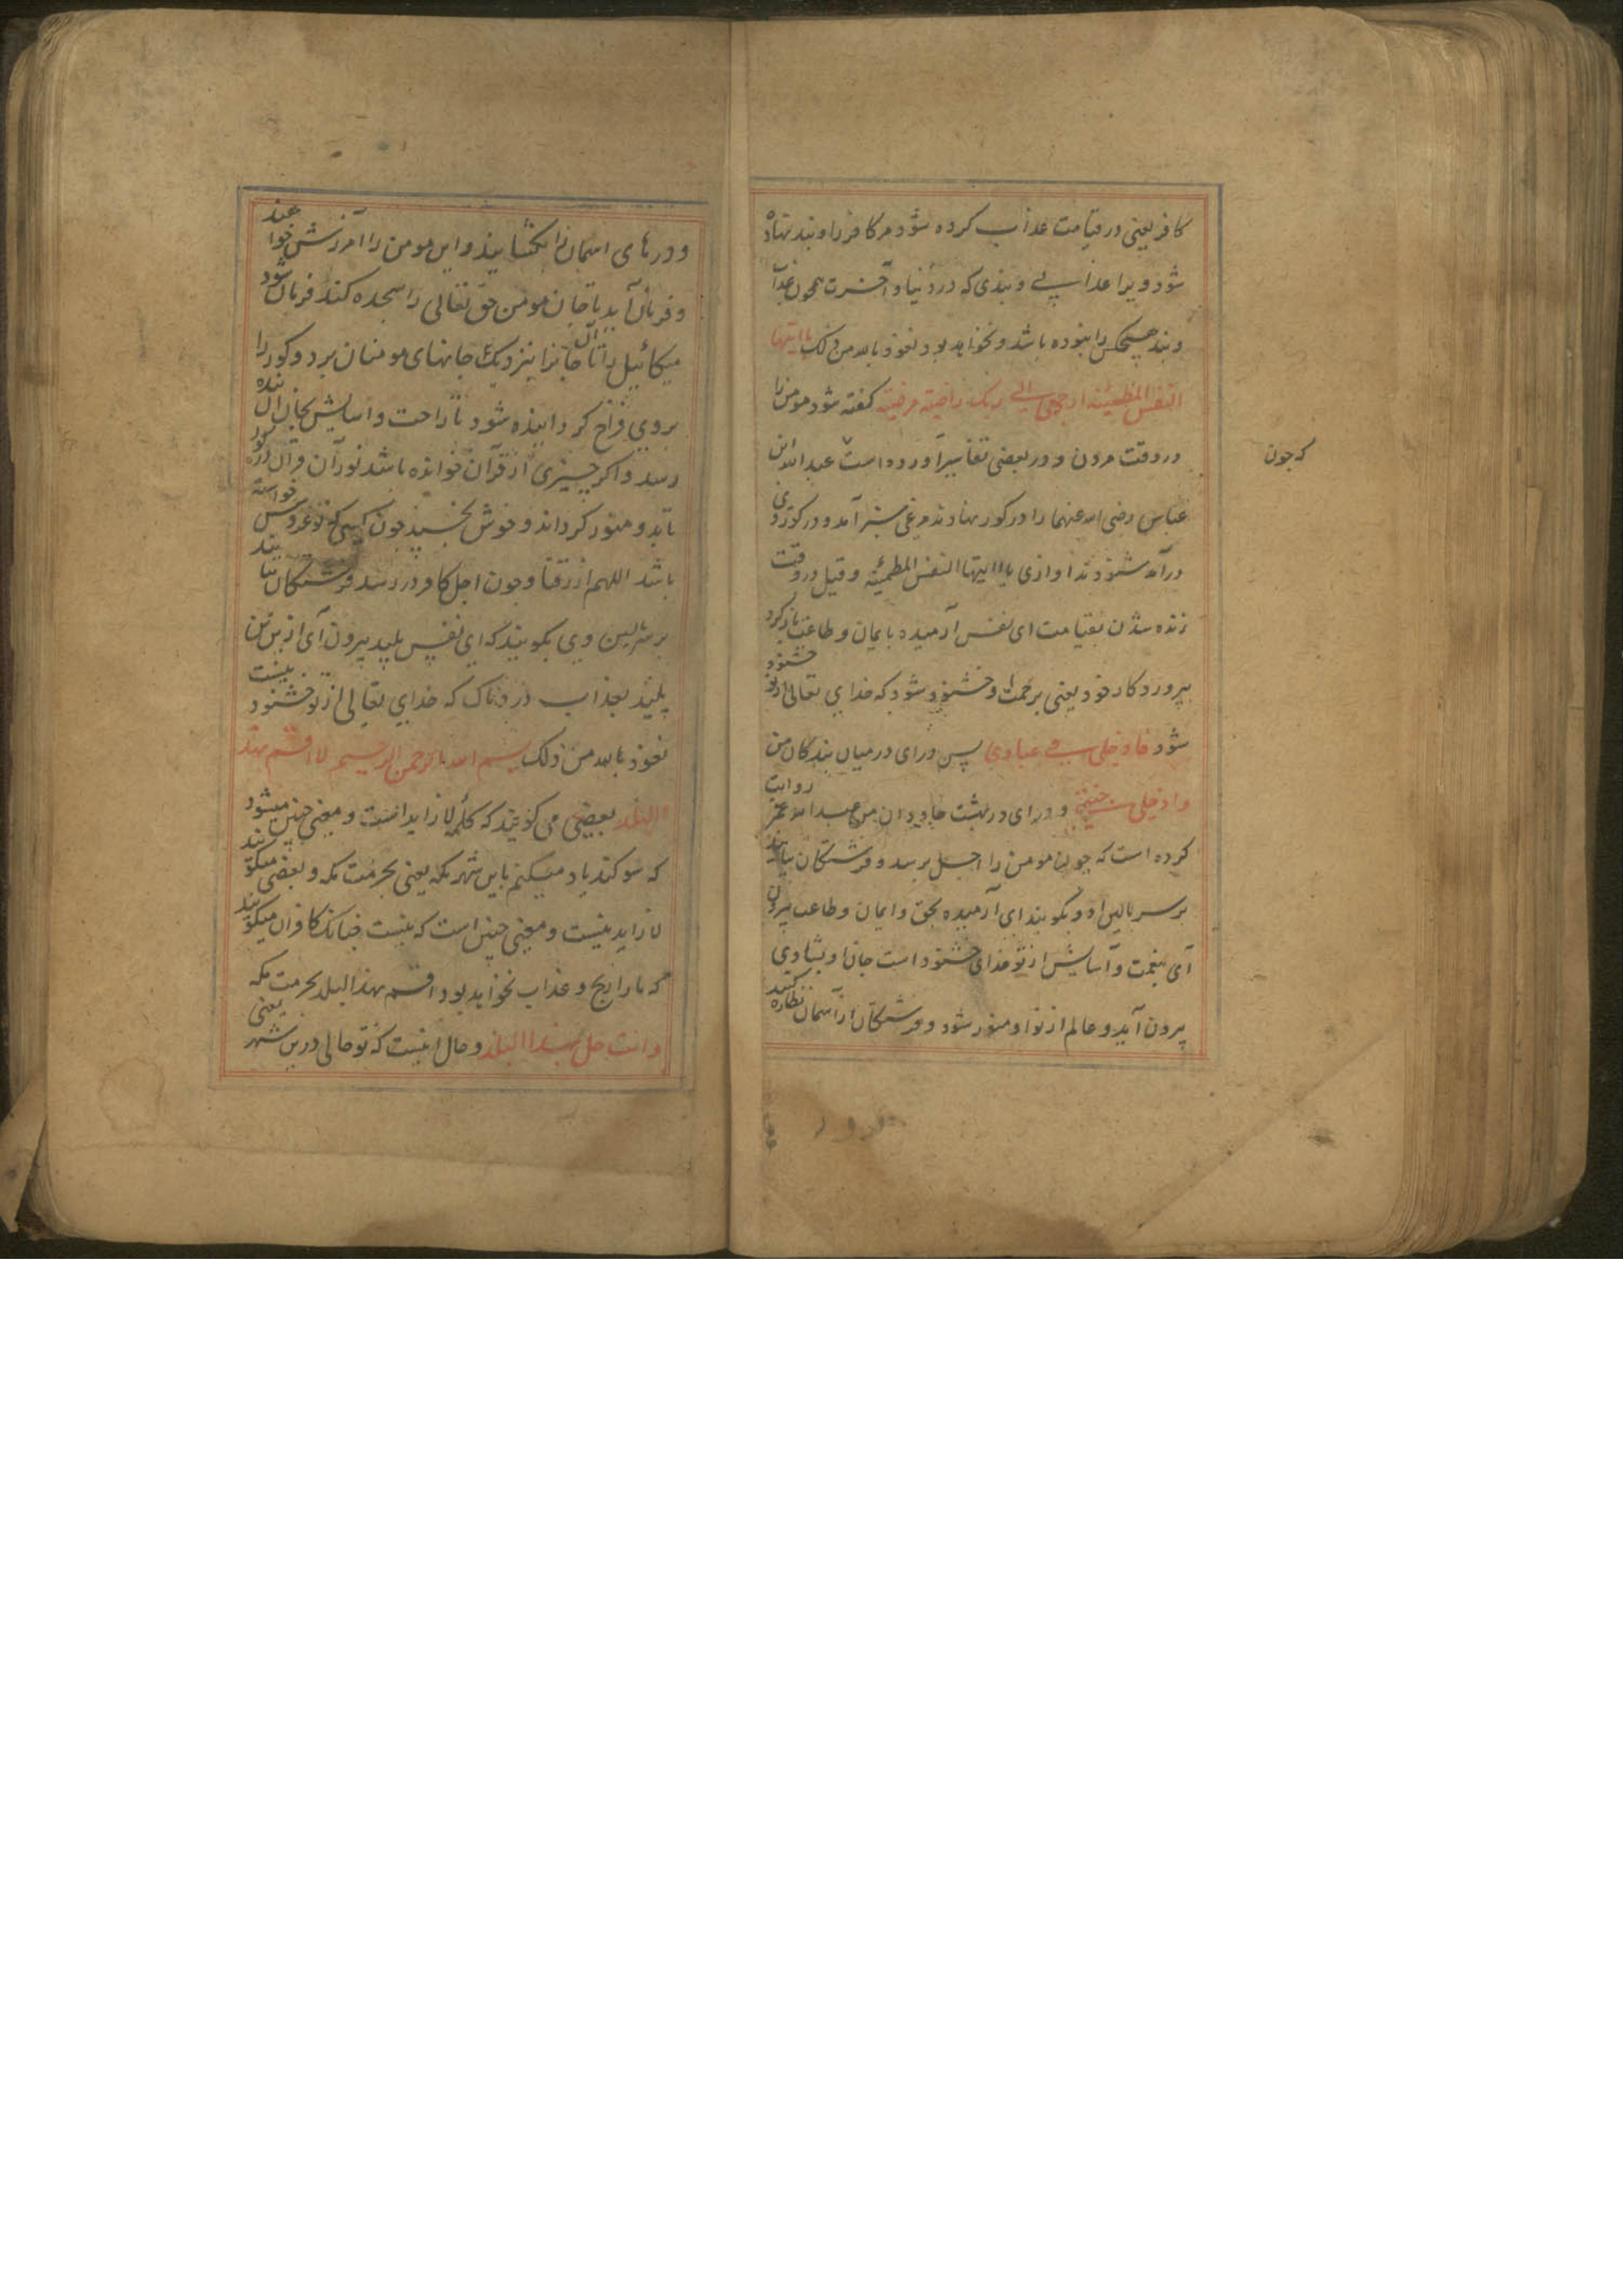 کافر یعنی در قیامت عذاب کرده شود مر کافر را و بند نهاده
شود ویرا عذابی و بندی که در دنیا و آخرت همچون عذاب
و بند هیچکس را نبوده باشد و نخواهد بود نعوذ بالله من ذلک یا ایتها
النفس المطمئنه ارجعی الی ربک راضیة مرضیة کفته شود مومن را
در وقت مردن و در بعضی تفاسیر آورده است عبد الله ابن
که جون
عباس رضی الله عنهما را در کور نهادند مرغی سبز آمد و در کور وی
درآمد شنودند اوازی یا ایتها النفس المطمئنه و قیل در وقت
زنده شدن بقیامت ای نفس آرمیده بایمان و طاعت باز کرد
بپروردکار خود یعنی برحمت او خشنود شود که خدای تعالی از تو خشنود
شود فادخلی فی عبادی پس درای در میان بندکان من
وادخلی جنتی و درای در بهشت جاویدان من عبد الله عمر روایت
کرده است که چون مومن را اجل برسد و فرشتکان بیایند
بر سر بالین او و بکویند ای آرمیده بحق و ایمان و طاعت بیرون
آی بنعمت و آسایش از تو خدای خشنود است جان او بشادی
بیرون آید و عالم از نور او منور شود و فرشتکان از آسمان نظاره کنند
و درهای اسمان را بکشایند و این مومن را آمرزش خواهند
و فرمان آید تا جان مومن حق تعالی را سجده کند فرمان شود
میکائیل را تا آن جانرا بنزدیک جانهای مومنان برد و کور را
بروی فراخ کردانیده شود تا راحت و اسایش بجان آن بنده
رسد و اکر چیزی از قرآن خوانده باشد نور آن قرآن در کور
تابد و منور کرداند و خوش بخسپد چون کسی که نو عروس خواسته
باشد اللهم ارزقنا و چون اجل کافر در رسد فرشتکان بیایند
بر بالین وی بکویند که ای نفس پلید بیرون آی ازین تن
پلید بعذاب دردناک که خدای تعالی از تو خشنود نیست
نعوذ بالله من ذلک بسم الله الرحمن الرحیم لا اقسم بهذا
البلد بعضی می کویند که کلمه لا زاید است و معنی چنین میشود
که سوکند یاد میکنم باین شهر مکه یعنی بحرمت مکه و بعضی میکویند
لا زاید نیست و معنی چنین است که نیست چنانک کافران میکویند
که ما را رنج و عذاب نخواهد بود اقسم بهذا البلد بحرمت مکه
وانت حل بهذا البلد و حال اینست که تو حالی درین شهر یعنی